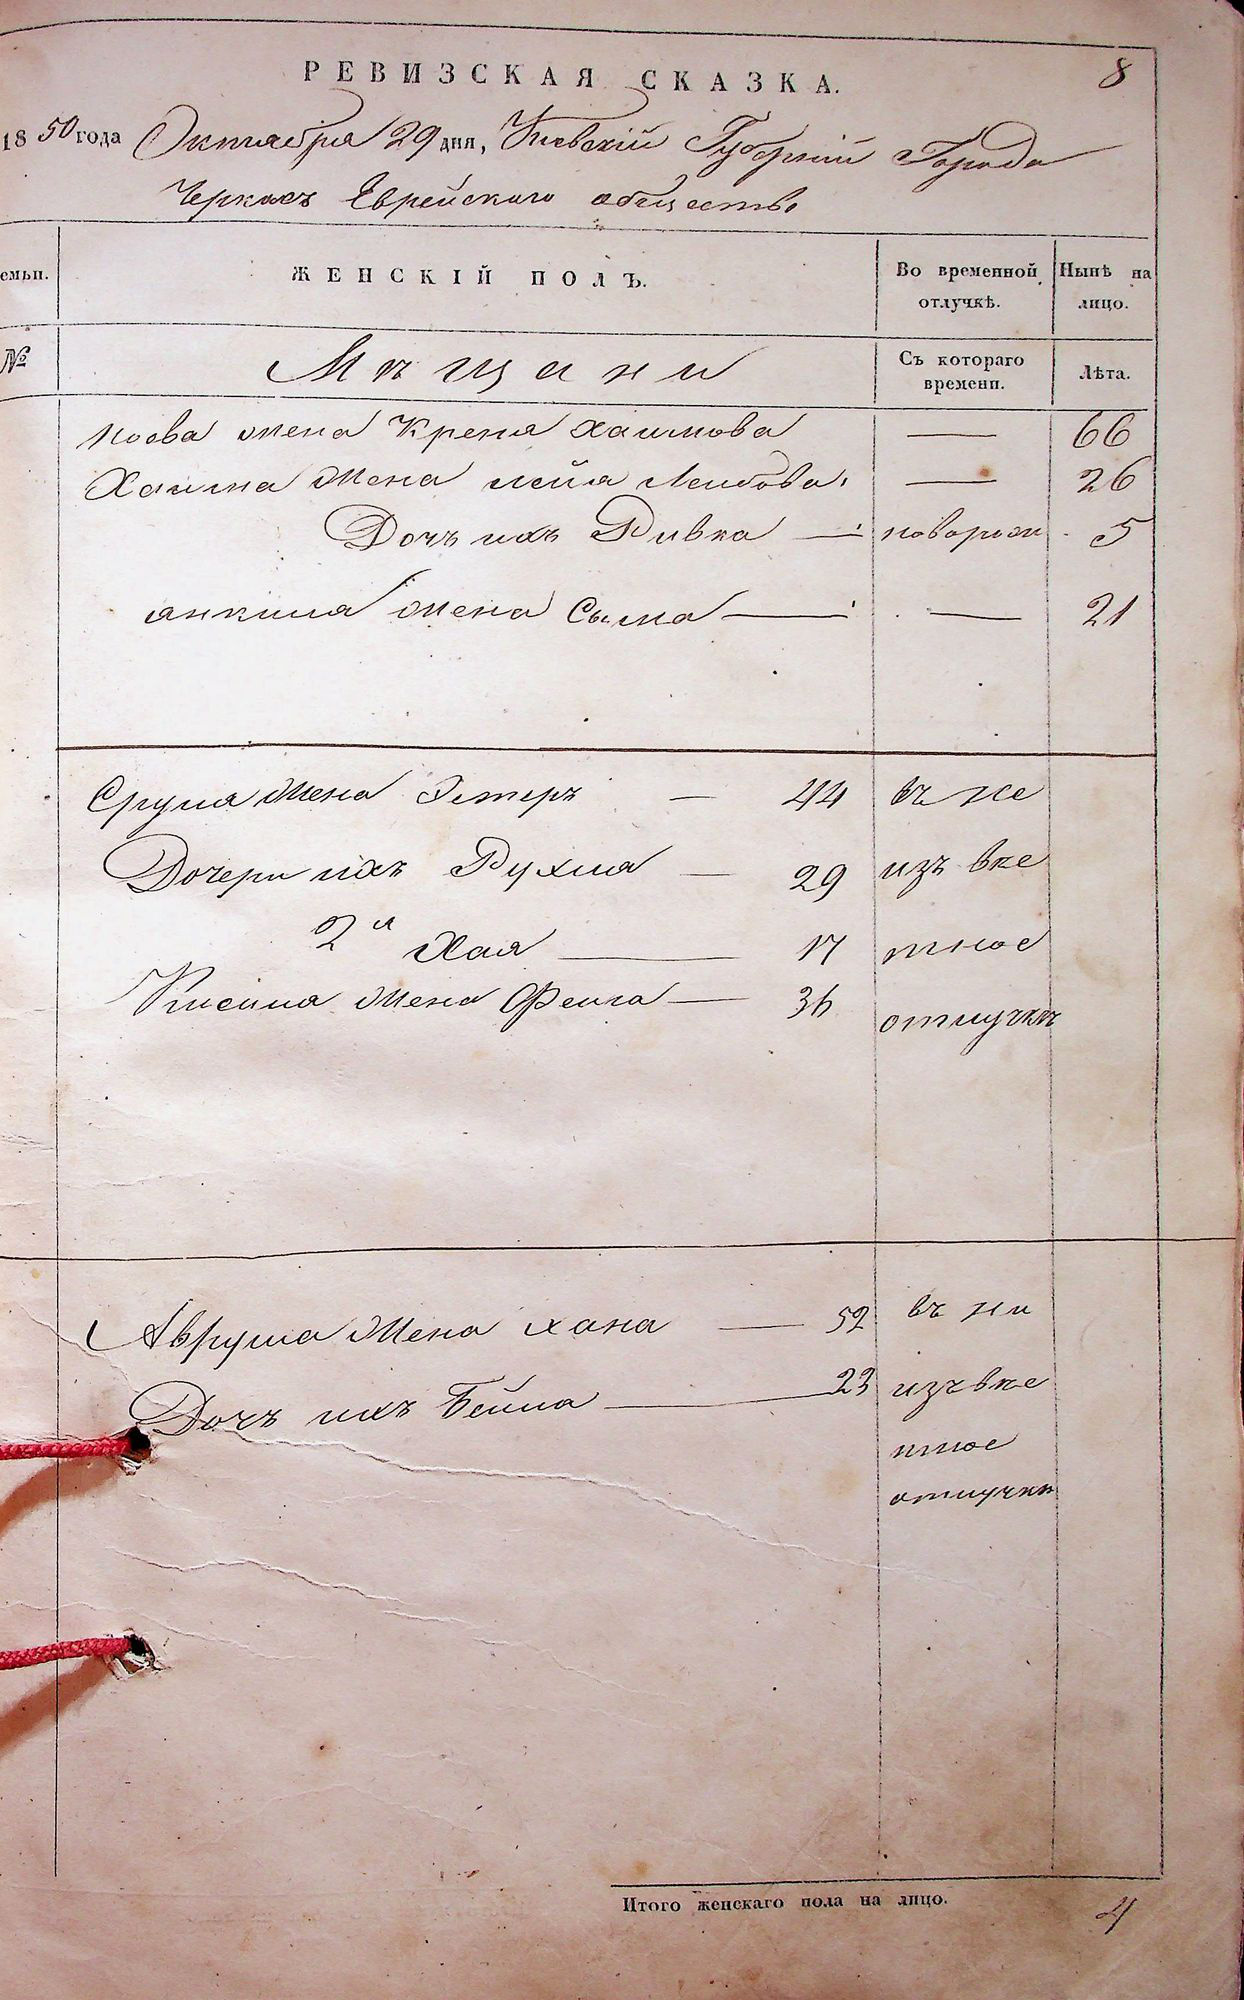 РЕВИЗСКАЯ СКАЗКА. 8
1850 года Октября 29 дня, Киевскій Губерній Города
Черкасъ Еврейского общество
емьи. ЖЕНСКІЙ ПОЛЪ. Во временной отлучкѣ. Нынѣ на лицо.
№ Мѣщани Съ котораго времени. Лѣта.
жена Креня Хаимова — 66
Хаима жена Лейя Лейбова — 26
Дочъ ихъ Ривка — новорож 5
Янкиля жена Сыма — — 21
Сруля жена Эстеръ — 44 въ не
Дочери ихъ Рухля — 29 изъ вѣс
2я Хая — 17 тной
Кисиля жена Фейга — 36 отлучкѣ
Аврума жена Хана — 52 въ ни
Дочъ ихъ Бейла — 23 изъ вѣс
тной
отлучки
Итого женскаго пола на лицо. 4